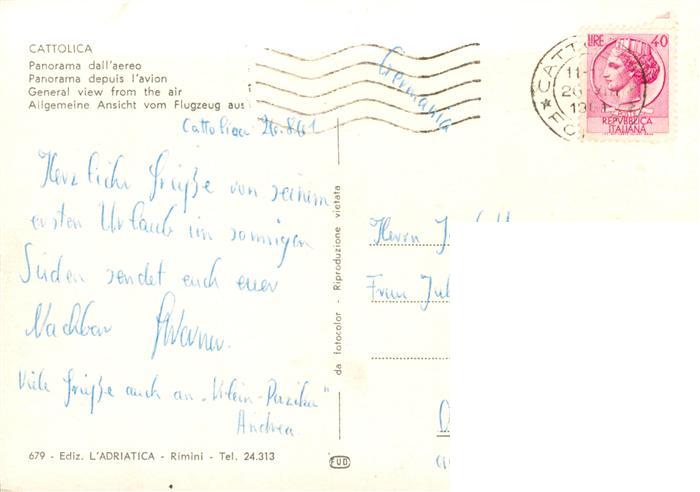 CATTOLICA
Panorama dall'aereo
Panorama depuis l'avion
General view from the air
Allgemeine Ansicht vom Flugzeug aus
Germania
LIRE 40
REPVBBLICA
ITALIANA
Cattolica 26.8.61
Herzliche Grüße von seinem
ersten Urlaub im sonnigen
Süden sendet euch euer
Nachbar Werner.
Viele Grüße auch an
Andrea
Herrn
Frau
da fotocolor - Riproduzione vietata
679 - Ediz. L'ADRIATICA - Rimini - Tel. 24.313
FUD